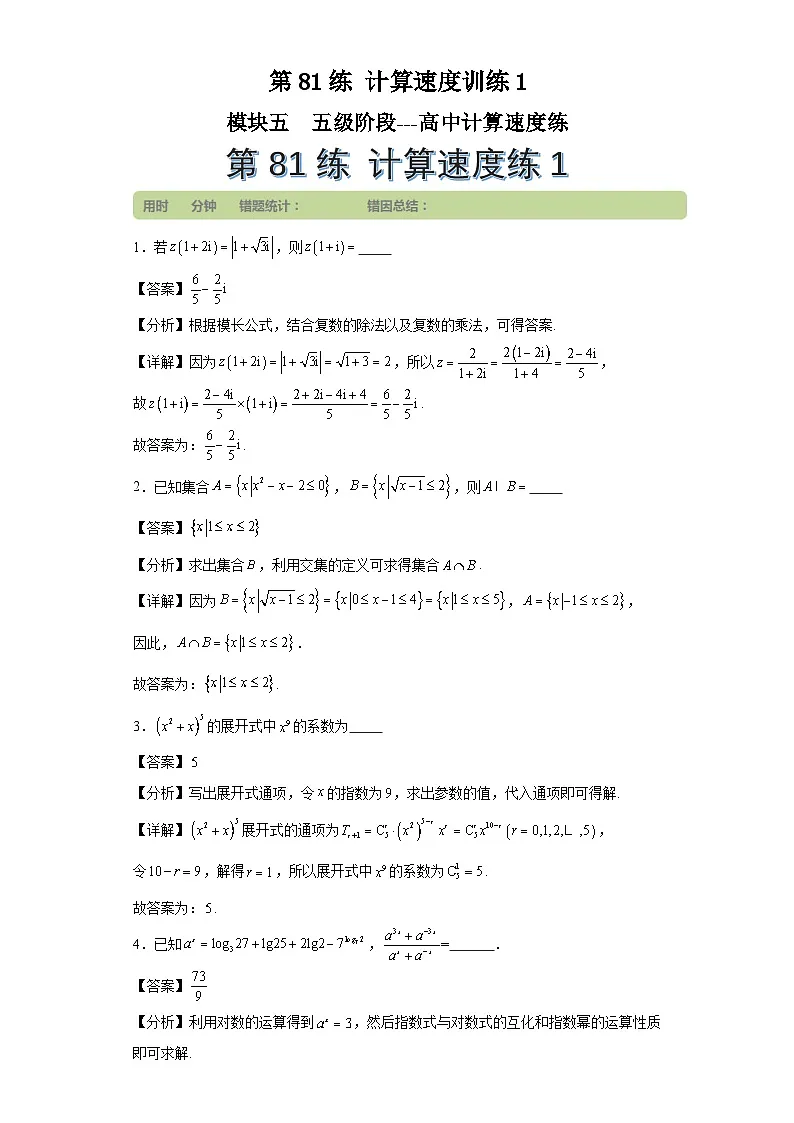 第 81 练 计算速度训练 1
模块五 五级阶段---高中计算速度练
第 81 练 计算速度练 1
用时 分钟 错题统计： 错因总结：
1．若z(1+2i)=|1+√3i|,则z(1+i)=____
【答案】6/5−2/5i
【分析】根据模长公式,结合复数的除法以及复数的乘法,可得答案.
【详解】因为z(1+2i)=|1+√3i|=√(1+3)=2,所以z=2/(1+2i)=2(1−2i)/(1+4)=(2−4i)/5,
故z(1+i)=(2−4i)/5×(1+i)=(2+2i−4i+4)/5=6/5−2/5i.
故答案为:6/5−2/5i.
2．已知集合A={x|x²−x−2≤0},B={x|√(x−1)≤2},则A∣ B=____
【答案】{x|1≤x≤2}
【分析】求出集合B,利用交集的定义可求得集合A∩B.
【详解】因为B={x|√(x−1)≤2}={x|0≤x−1≤4}={x|1≤x≤5},A={x|−1≤x≤2},
因此,A∩B={x|1≤x≤2}.
故答案为:{x|1≤x≤2}.
3．(x²+x)⁵的展开式中x⁹的系数为____
【答案】5
【分析】写出展开式通项,令x的指数为9,求出参数的值,代入通项即可得解.
【详解】(x²+x)⁵展开式的通项为Tᵣ₊₁=C₅ʳ·(x²)⁵⁻ʳxʳ=C₅ʳx¹⁰⁻ʳ(r=0,1,2,∟ ,5),
令10−r=9,解得r=1,所以展开式中x⁹的系数为C₅¹=5.
故答案为:5.
4．已知aˣ=log₃27+lg25+2lg2−7^(log₇2),(a³ˣ+a⁻³ˣ)/(aˣ+a⁻ˣ)=____.
【答案】73/9
【分析】利用对数的运算得到aˣ=3,然后指数式与对数式的互化和指数幂的运算性质
即可求解.